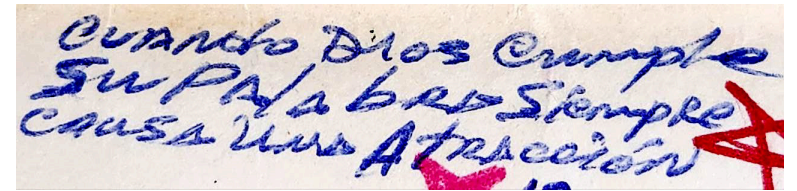 Cuando Dios Cumple
Su Palabra Siempre
Causa una Atracción